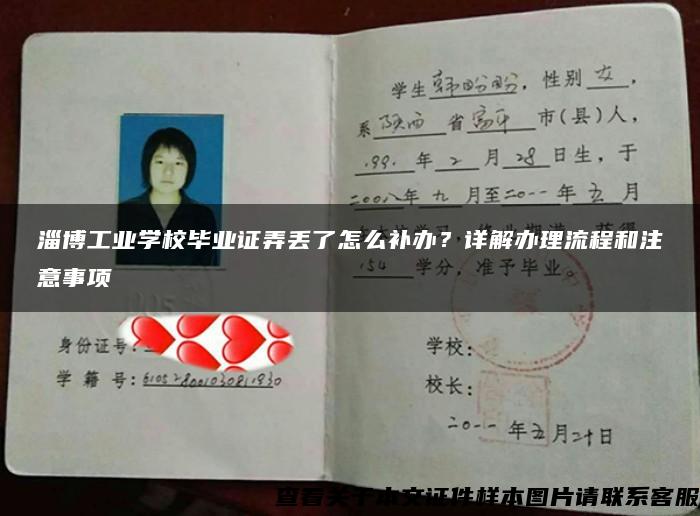 学生韩盼盼，性别女，
系陕西省富平市(县)人，
1991年2月28日生，于
二00八年九月至二0一一年五月
淄博工业学校毕业证弄丢了怎么补办？详解办理流程和注
意事项
154学分，准予毕业。
身份证号:
学籍号:610528001030811930
学校:
校长:
二0一一年五月二十日
查看关于本文证件样本图片请联系客服